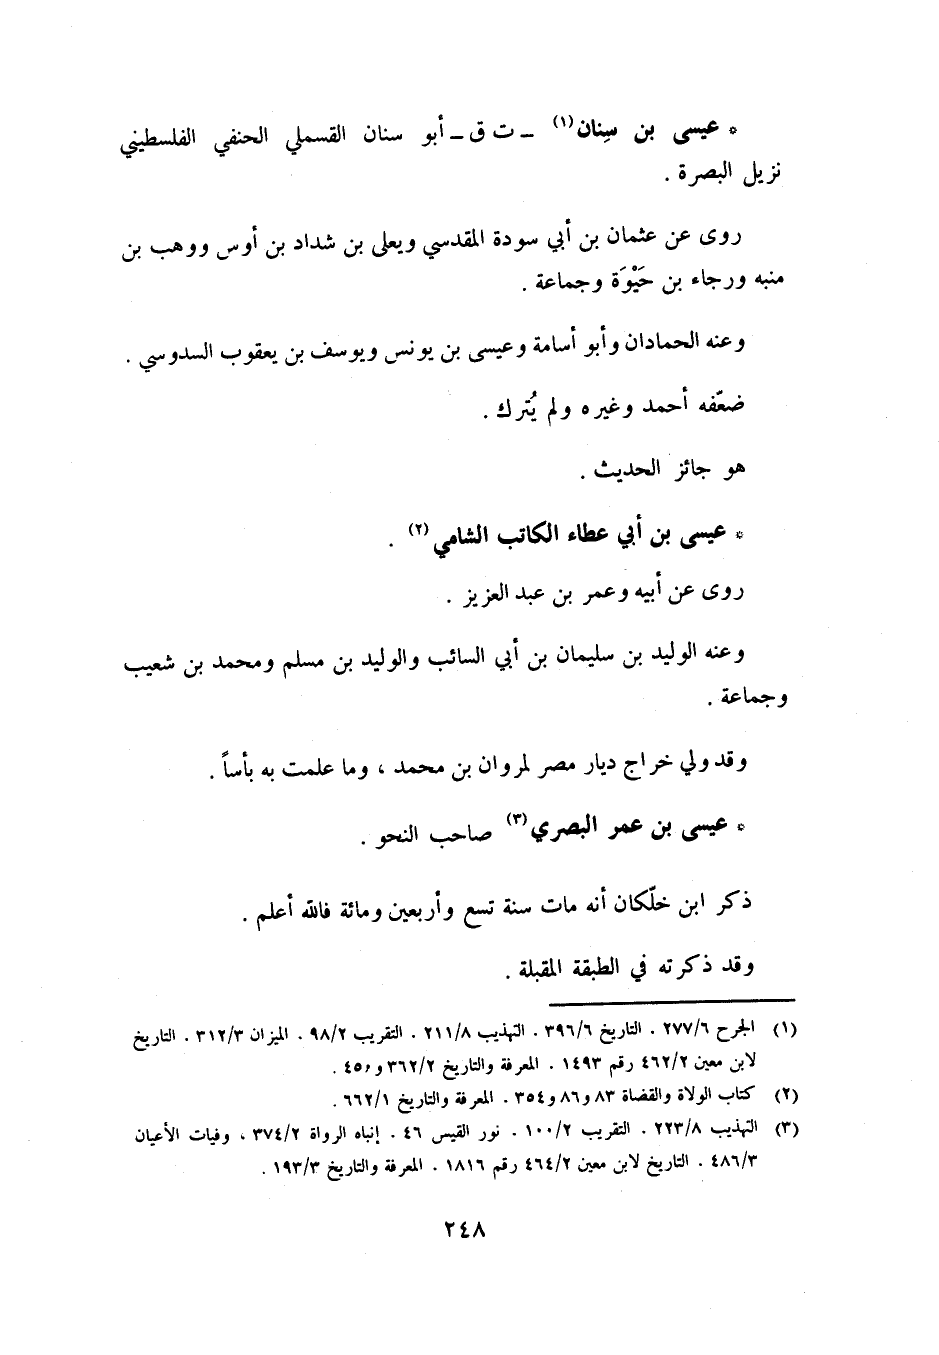 * عيسى بن سِنان(١) ـ ت ق ـ أبو سنان القسملي الحنفي الفلسطيني
نزيل البصرة .
روى عن عثمان بن أبي سودة المقدسي ويعلى بن شداد بن أوس ووهب بن
منبه ورجاء بن حَيْوَة وجماعة .
وعنه الحمادان وأبو أسامة وعيسى بن يونس ويوسف بن يعقوب السدوسي .
ضعّفه أحمد وغيره ولم يُترك .
هو جائز الحديث .
* عيسى بن أبي عطاء الكاتب الشامي(٢) .
روى عن أبيه وعمر بن عبد العزيز .
وعنه الوليد بن سليمان بن أبي السائب والوليد بن مسلم ومحمد بن شعيب
وجماعة .
وقد ولي خراج ديار مصر لمروان بن محمد ، وما علمت به بأساً .
* عيسى بن عمر البصري(٣) صاحب النحو .
ذكر ابن خلّكان أنه مات سنة تسع وأربعين ومائة فالله أعلم .
وقد ذكرته في الطبقة المقبلة .
(١) الجرح ٢٧٧/٦ . التاريخ ٣٩٦/٦ . التهذيب ٢١١/٨ . التقريب ٩٨/٢ . الميزان ٣١٢/٣ . التاريخ
لابن معين ٤٦٢/٢ رقم ١٤٩٣ . المعرفة والتاريخ ٣٦٢/٢ و٤٥٠ .
(٢) كتاب الولاة والقضاة ٨٣ و٨٦ و٣٥٤ . المعرفة والتاريخ ٦٦٢/١ .
(٣) التهذيب ٢٢٣/٨ . التقريب ١٠٠/٢ . نور القبس ٤٦ . إنباه الرواة ٣٧٤/٢ ، وفيات الأعيان
٤٨٦/٣ . التاريخ لابن معين ٤٦٤/٢ رقم ١٨١٦ . المعرفة والتاريخ ١٩٣/٣ .
٢٤٨